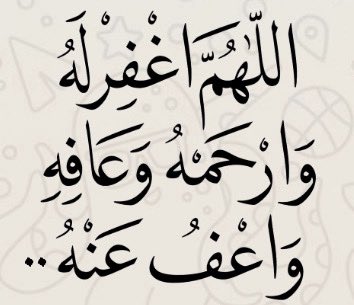 اللَّهُمَّ اغْفِرْ لَهُ
وَارْحَمْهُ وَعَافِهِ
وَاعْفُ عَنْهُ..